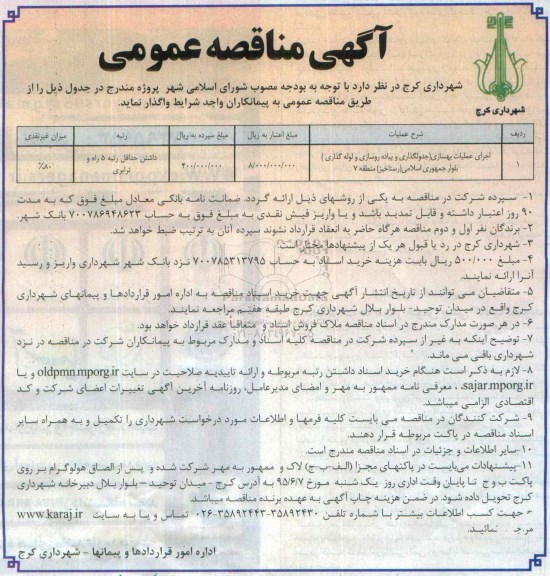 آگهی مناقصه عمومی
شهرداری کرج
شهرداری کرج در نظر دارد با توجه به بودجه مصوب شورای اسلامی شهر پروژه مندرج در جدول ذیل را از
طریق مناقصه عمومی به پیمانکاران واجد شرایط واگذار نماید.
ردیف شرح عملیات مبلغ اعتبار به ریال مبلغ سپرده به ریال رتبه میزان غیرنقدی
۱ اجرای عملیات بهسازی(جدولگذاری و پیاده روسازی و لوله گذاری ) ۸/۰۰۰/۰۰۰/۰۰۰ ۴۰۰/۰۰۰/۰۰۰ داشتن حداقل رتبه ۵ راه و ۸۰٪
بلوار جمهوری اسلامی(رستاخیز) منطقه ۷ ترابری
۱- سپرده شرکت در مناقصه به یکی از روشهای ذیل ارائه گردد. ضمانت نامه بانکی معادل مبلغ فوق که به مدت
۹۰ روز اعتبار داشته و قابل تمدید باشد و یا واریز فیش نقدی به مبلغ فوق به حساب ۷۰۰۷۸۶۹۴۸۶۲۳ بانک شهر.
۲- برندگان نفر اول و دوم مناقصه هرگاه حاضر به انعقاد قرارداد نشوند سپرده آنان به ترتیب ضبط خواهد شد.
۳- شهرداری کرج در رد یا قبول هر یک از پیشنهادها مختار است.
۴- مبلغ ۵۰۰/۰۰۰ ریال بابت هزینه خرید اسناد به حساب ۷۰۰۷۸۵۳۱۳۷۹۵ نزد بانک شهر شهرداری واریز و رسید
آنرا ارائه نمایند.
۵- متقاضیان می توانند از تاریخ انتشار آگهی جهت خرید اسناد مناقصه به اداره امور قراردادها و پیمانهای شهرداری
کرج واقع در میدان توحید- بلوار بلال شهرداری کرج طبقه هفتم مراجعه نمایند.
۶- در هر صورت مدارک مندرج در اسناد مناقصه ملاک فروش اسناد و متعاقبا عقد قرارداد خواهد بود.
۷- توضیح اینکه به غیر از سپرده شرکت در مناقصه کلیه اسناد و مدارک مربوط به پیمانکاران شرکت در مناقصه در نزد
شهرداری باقی می ماند.
۸- لازم به ذکر است هنگام خرید اسناد داشتن رتبه مربوطه و ارائه تاییدیه صلاحیت در سایت oldpmn.mporg.ir و یا
sajar.mporg.ir ، معرفی نامه ممهور به مهر و امضای مدیرعامل، روزنامه آخرین آگهی تغییرات اعضای شرکت و کد
اقتصادی الزامی میباشد.
۹- شرکت کنندگان در مناقصه می بایست کلیه فرمها و اطلاعات مورد درخواست شهرداری را تکمیل و به همراه سایر
اسناد مناقصه در پاکت مربوطه قرار دهند.
۱۰- سایر اطلاعات و جزئیات در اسناد مناقصه مندرج است.
۱۱- پیشنهادات می‌بایست در پاکتهای مجزا (الف-ب-ج) لاک و ممهور به مهر شرکت شده و پس از الصاق هولوگرام بر روی
پاکت ب و ج تا پایان وقت اداری روز یک شنبه مورخ ۹۵/۶/۷ به آدرس کرج - میدان توحید - بلوار بلال دبیرخانه شهرداری
کرج تحویل داده شود. در ضمن هزینه چاپ آگهی به عهده برنده مناقصه میباشد.
جهت کسب اطلاعات بیشتر با شماره تلفن ۳۵۸۹۲۴۳۰-۳۵۸۹۲۴۴۳-۰۲۶ تماس و یا به سایت www.karaj.ir
نمائید.
اداره امور قراردادها و پیمانها - شهرداری کرج